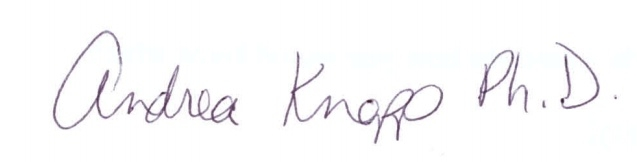 Andrea Knapp Ph.D.